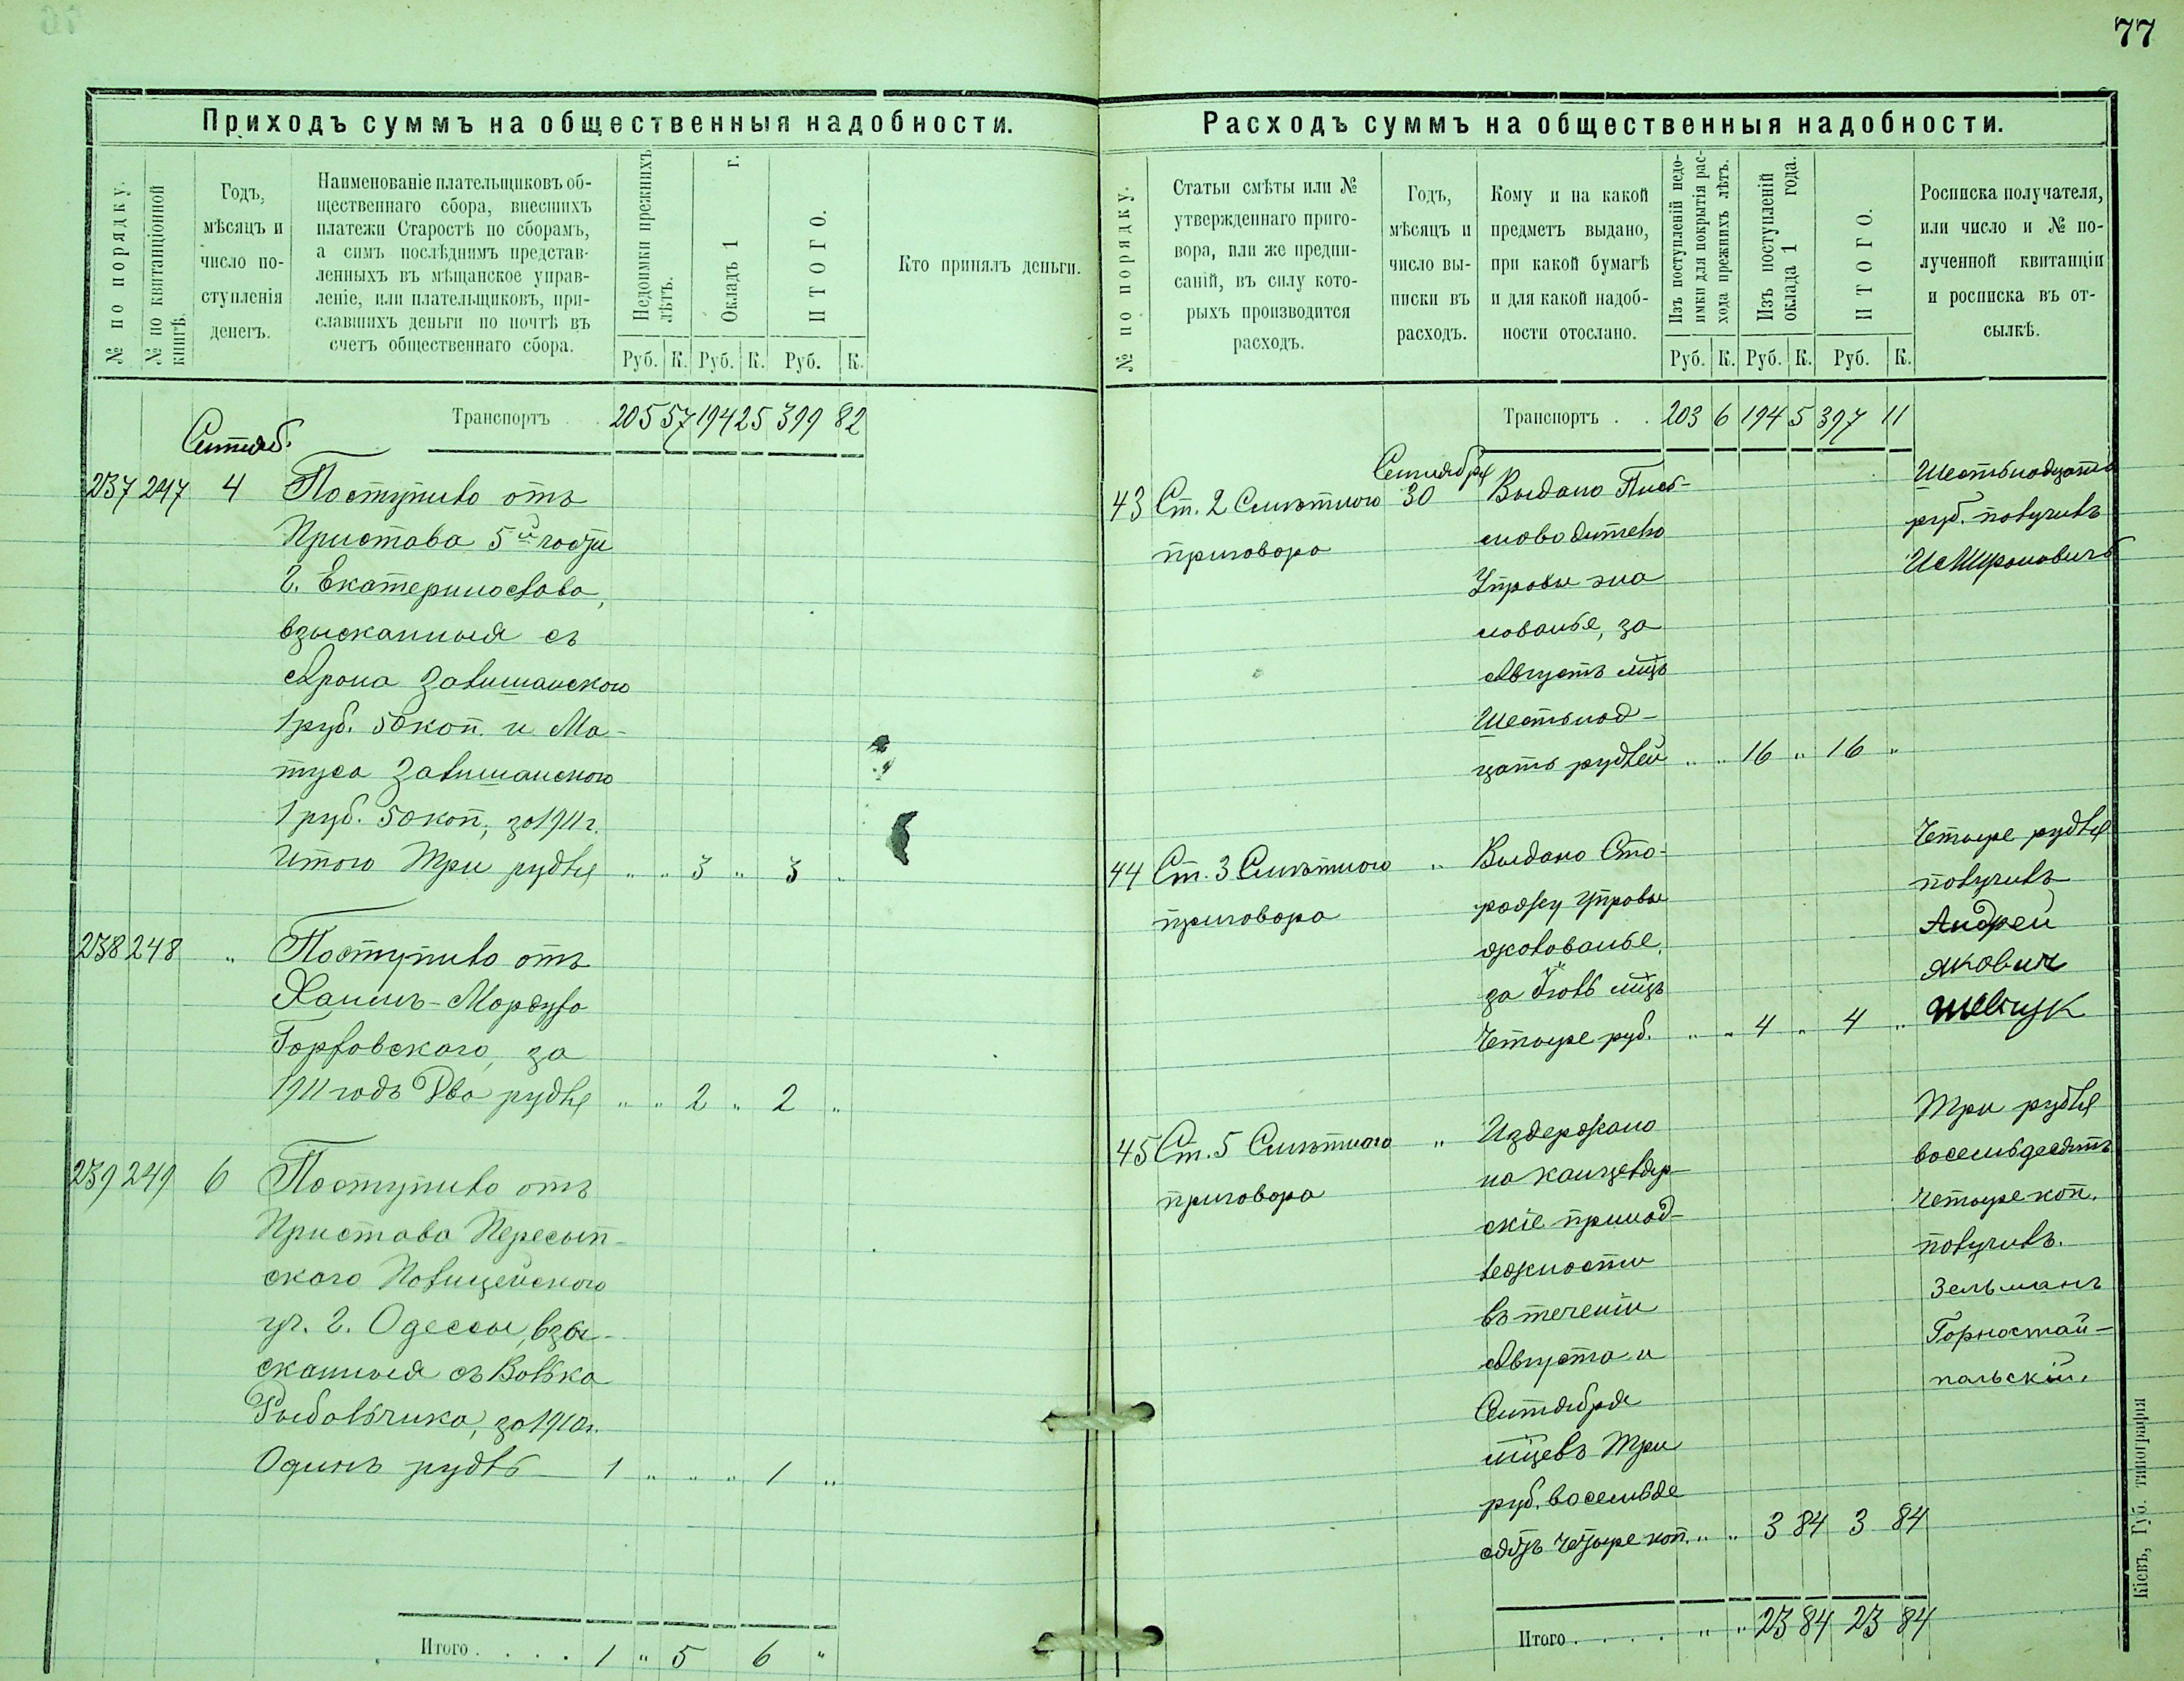 77
Приходъ суммъ на общественныя надобности.
№ по порядку.
№ по квитанціонной книгѣ.
Годъ, мѣсяцъ и число поступленія денегъ.
Наименованіе плательщиковъ об-
щественнаго сбора, внесшихъ
платежи Старостѣ по сборамъ,
а симъ послѣднимъ представ-
ленныхъ въ мѣщанское управ-
леніе, или плательщиковъ, при-
славшихъ деньги по почтѣ въ
счетъ общественнаго сбора.
Недоимки прежнихъ лѣтъ.
Окладъ 1 г.
ИТОГО.
Кто принялъ деньги.
Руб. К. Руб. К. Руб. К.
Транспортъ 205 57 194 25 399 82
Сентяб.
237 247 4 Поступило отъ
Пристава 5й части
г. Екатеринослава,
взысканныя съ
Арона Завишанского
1 руб. 50 коп. и Ма-
туса Завишанского
1 руб. 50 коп, за 1911 г.
Итого Три рубля " " 3 " 3 "
238 248 " Поступило отъ
Хаимъ-Мордуха
Горховского, за
1911 годъ Два рубля " " 2 " 2 "
239 249 6 Поступило отъ
Пристава Пересып-
ского Полицейского
уч. г. Одессы, взы-
сканныя съ Волька
Рыбальчика, за 1910 г.
Одинъ рубль 1 " " " 1 "
Итого 1 " 5 6 "
Расходъ суммъ на общественныя надобности.
№ по порядку.
Статьи смѣты или №
утвержденнаго приго-
вора, или же предпи-
саній, въ силу кото-
рыхъ производится
расходъ.
Годъ,
мѣсяцъ и
число вы-
писки въ
расходъ.
Кому и на какой
предметъ выдано,
при какой бумагѣ
и для какой надоб-
ности отослано.
Изъ поступленій недо-
имки для покрытія рас-
хода прежнихъ лѣтъ.
Изъ поступленій
оклада 1 года.
ИТОГО.
Росписка получателя,
или число и № по-
лученной квитанціи
и росписка въ от-
сылкѣ.
Руб. К. Руб. К. Руб. К.
Транспортъ . . 203 6 194 5 397 11
Сентября
43 Ст. 2 Смѣтного 30
приговора
Выдано Пись-
моводителю
Управы жа
лованье, за
Августъ мцъ
Шестьнад-
цать рублей " " 16 " 16 "
Шестьнадцать
руб. получилъ
44 Ст. 3 Смѣтного "
приговора
Выдано Сто-
рожу Управы
жалованье,
мцъ
Четыре руб. " " 4 " 4 "
Четыре рубля
получилъ
Андрей
Якович
Шевчук
45 Ст. 5 Смѣтного "
приговора
Издержано
на канцеляр-
скіе принад-
лежности
въ теченіи
Августа и
Сентября
мцевъ Три
руб. восемьде
сятъ четыре коп. " " 3 84 3 84
Три рубля
восемьдесятъ
четыре коп.
получилъ.
Зельманъ
Горностай-
польскій.
Итого . . . . " " 23 84 23 84
Кіевъ, Губ. типографія